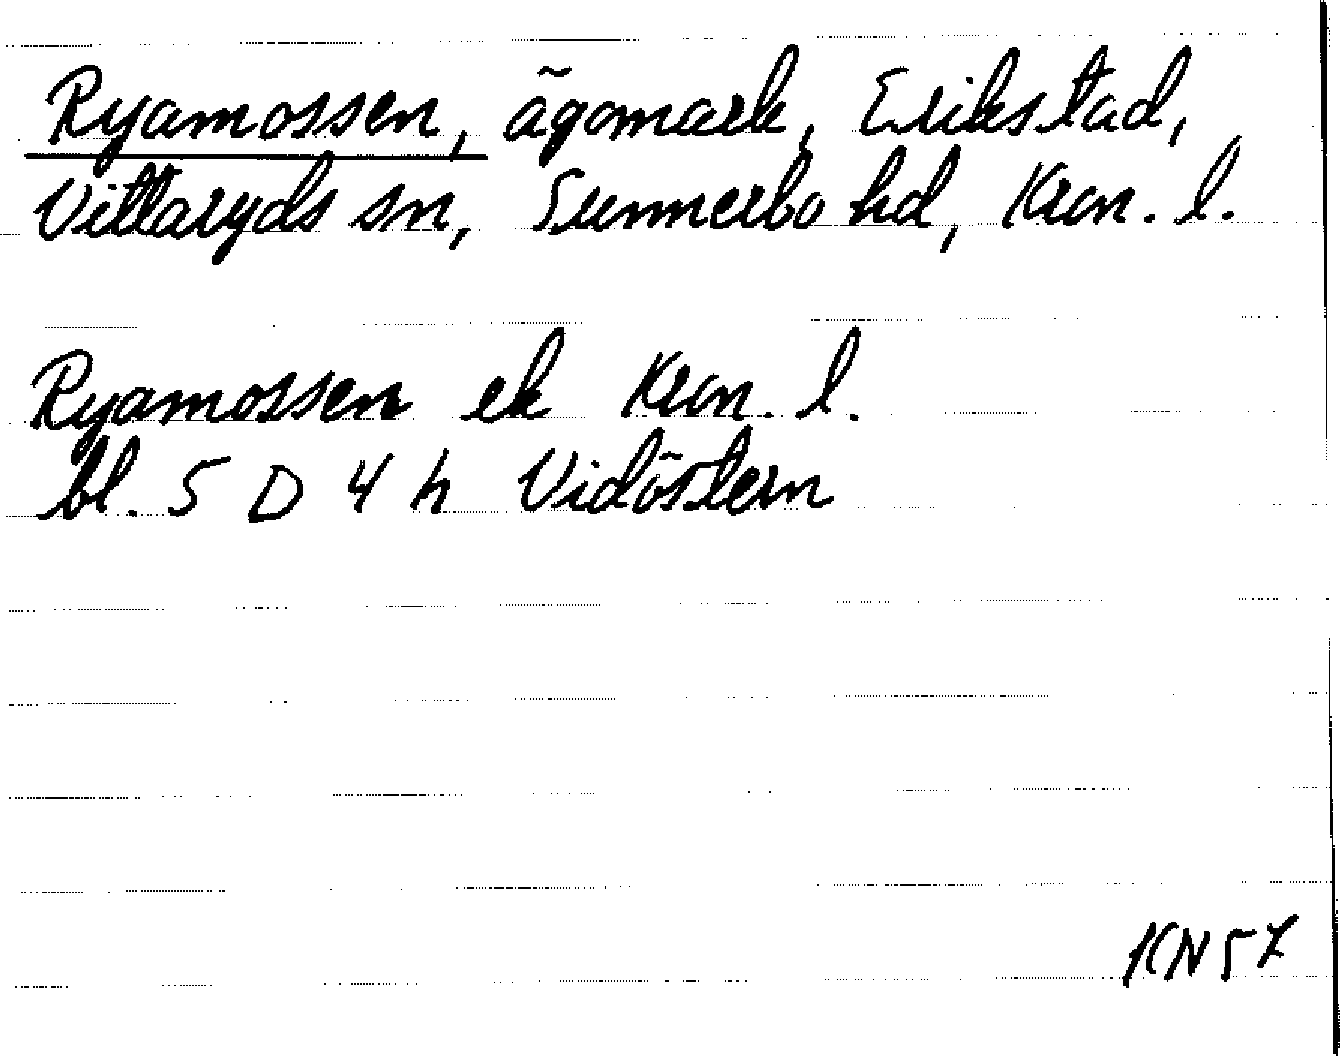 Ryamossen, ägomark, Erikstad,
Vittaryds sn, Sunnerbo hd, Kron. l.
Ryamossen ek Kron. l.
bl. 5 D 4 h Vidöstern
KN57